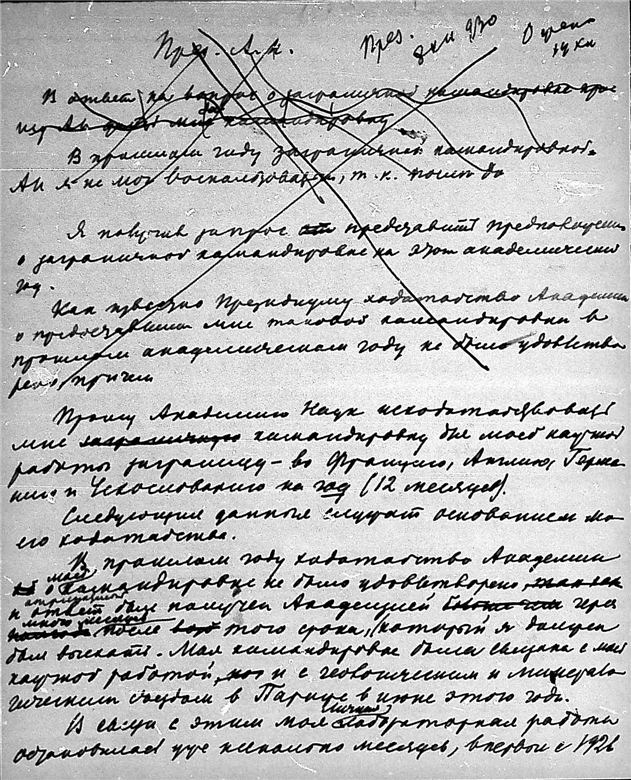 През. А.Н.
През.
В ответ на вопрос о заграничной командировке
мне командировку
В прошлом году заграничной командировкой
АН я не мог воспользоваться, т.к. после до
Я получив запрос представить предположения
о заграничной командировке на этот академический
год.
Как известно Президиуму ходатайство Академии
о предоставлении мне таковой командировки в
прошлом академическом году не было удовлетво
рено причем
Прошу Академию Наук исходатайствовать
мне заграничную командировку для моей научной
работы заграницу – во Францию, Англию, Герма
нию и Чехословакию на год (12 месяцев).
Следующие данные служат основанием мо
его ходатайства.
В прошлом году ходатайство Академии
о моей командировке не было удовлетворено,
и отрицательный ответ был получен Академией через
много месяцев после того срока, (который я должен
был выехать. Моя командировка была связана с моей
научной работой, и с геологическим и минерало
гическим съездом в Париже в июне этого года.
В связи с этим моя личная лабораторная работа
остановилась уже несколько месяцев, впервые с 1926